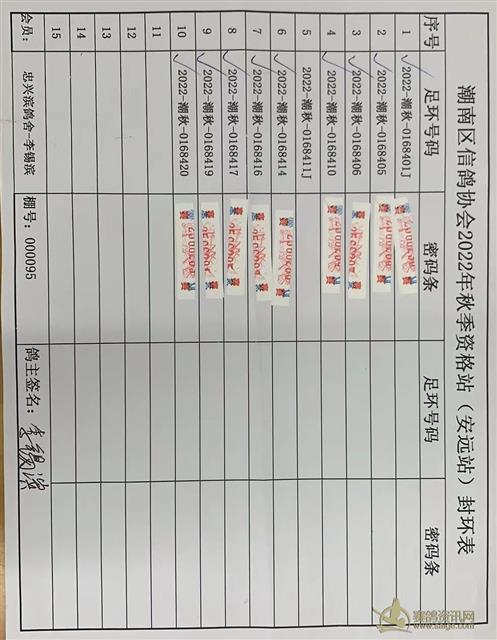 潮南区信鸽协会2022年秋季资格站（安远站）封环表
序号 足环号码 密码条 足环号码 密码条
1 2022-潮秋-0168401J
2 2022-潮秋-0168405
3 2022-潮秋-0168406
4 2022-潮秋-0168410
5 2022-潮秋-0168411J
6 2022-潮秋-0168414
7 2022-潮秋-0168416
8 2022-潮秋-0168417
9 2022-潮秋-0168419
10 2022-潮秋-0168420
11
12
13
14
15
会员： 忠兴滨鸽舍-李锡滨 棚号：000095 鸽主签名：李锡滨
赛鸽资讯网
www.saige.com